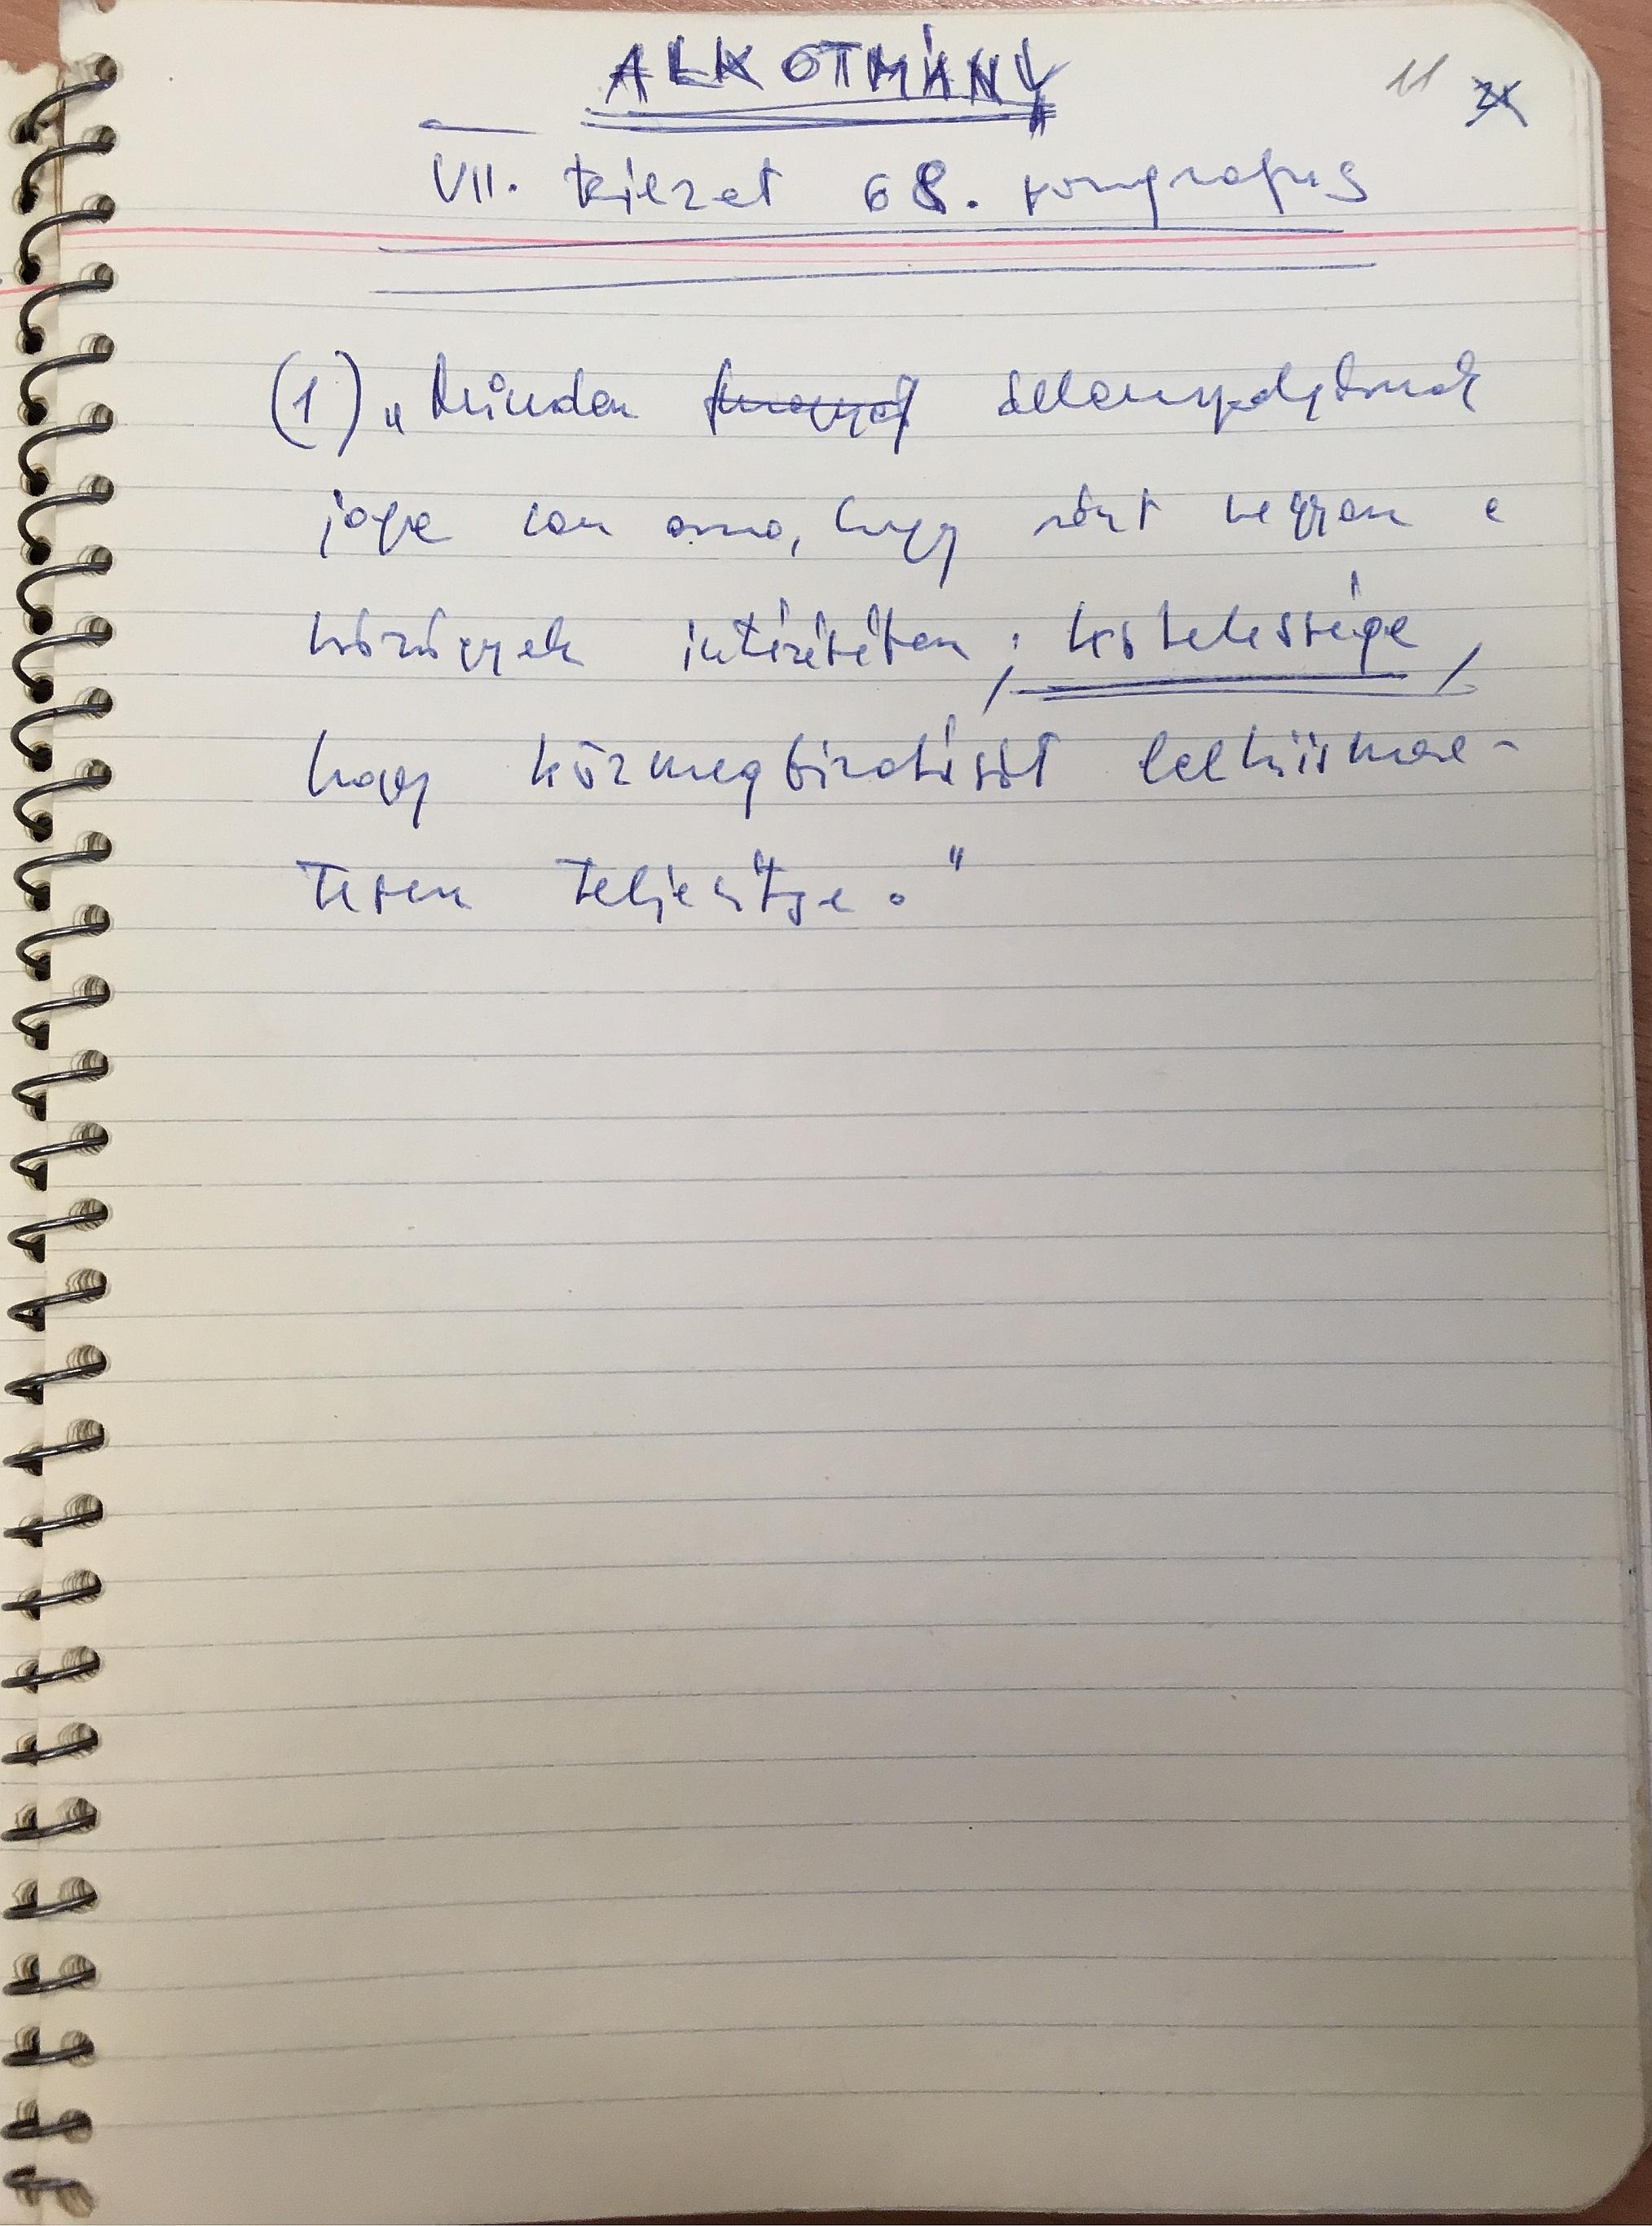 ALKOTMÁNY
11
VII. fejezet 68. paragrafus
(1) „Minden állampolgárnak
joga van arra, hogy részt vegyen a
közügyek intézésében; kötelessége,
hogy közmegbízatását lelkiisme-
retesen teljesítse."